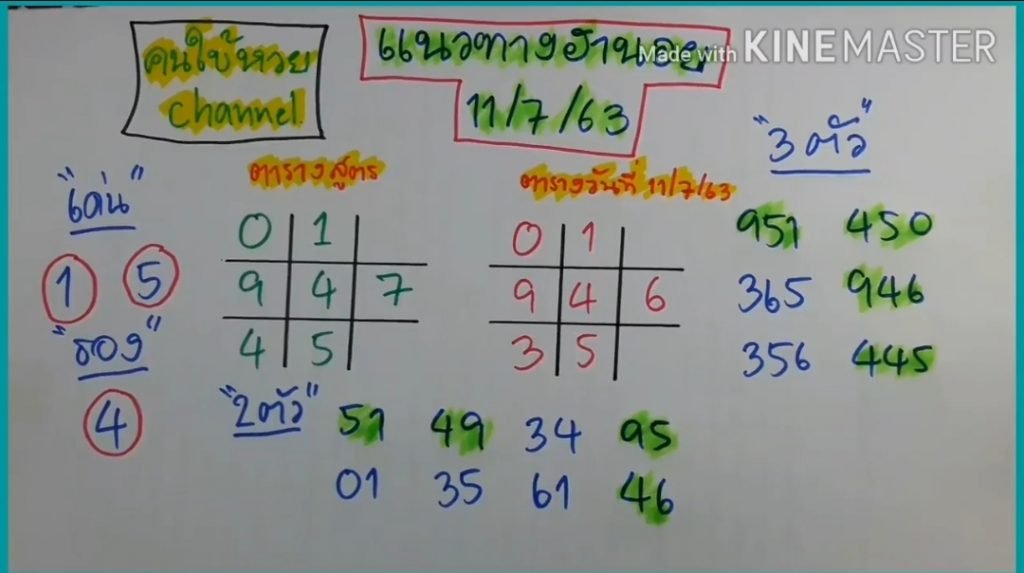 คนใบ้หวย
channel
แนวทางฮานอย
11/7/63
Made with KINEMASTER
"เด่น"
1 5
"รอง"
4
ตารางสูตร
0 1
9 4 7
4 5
ตารางวันที่ 11/7/63
0 1
9 4 6
3 5
"3 ตัว"
951 450
365 946
356 445
"2 ตัว"
51 49 34 95
01 35 61 46